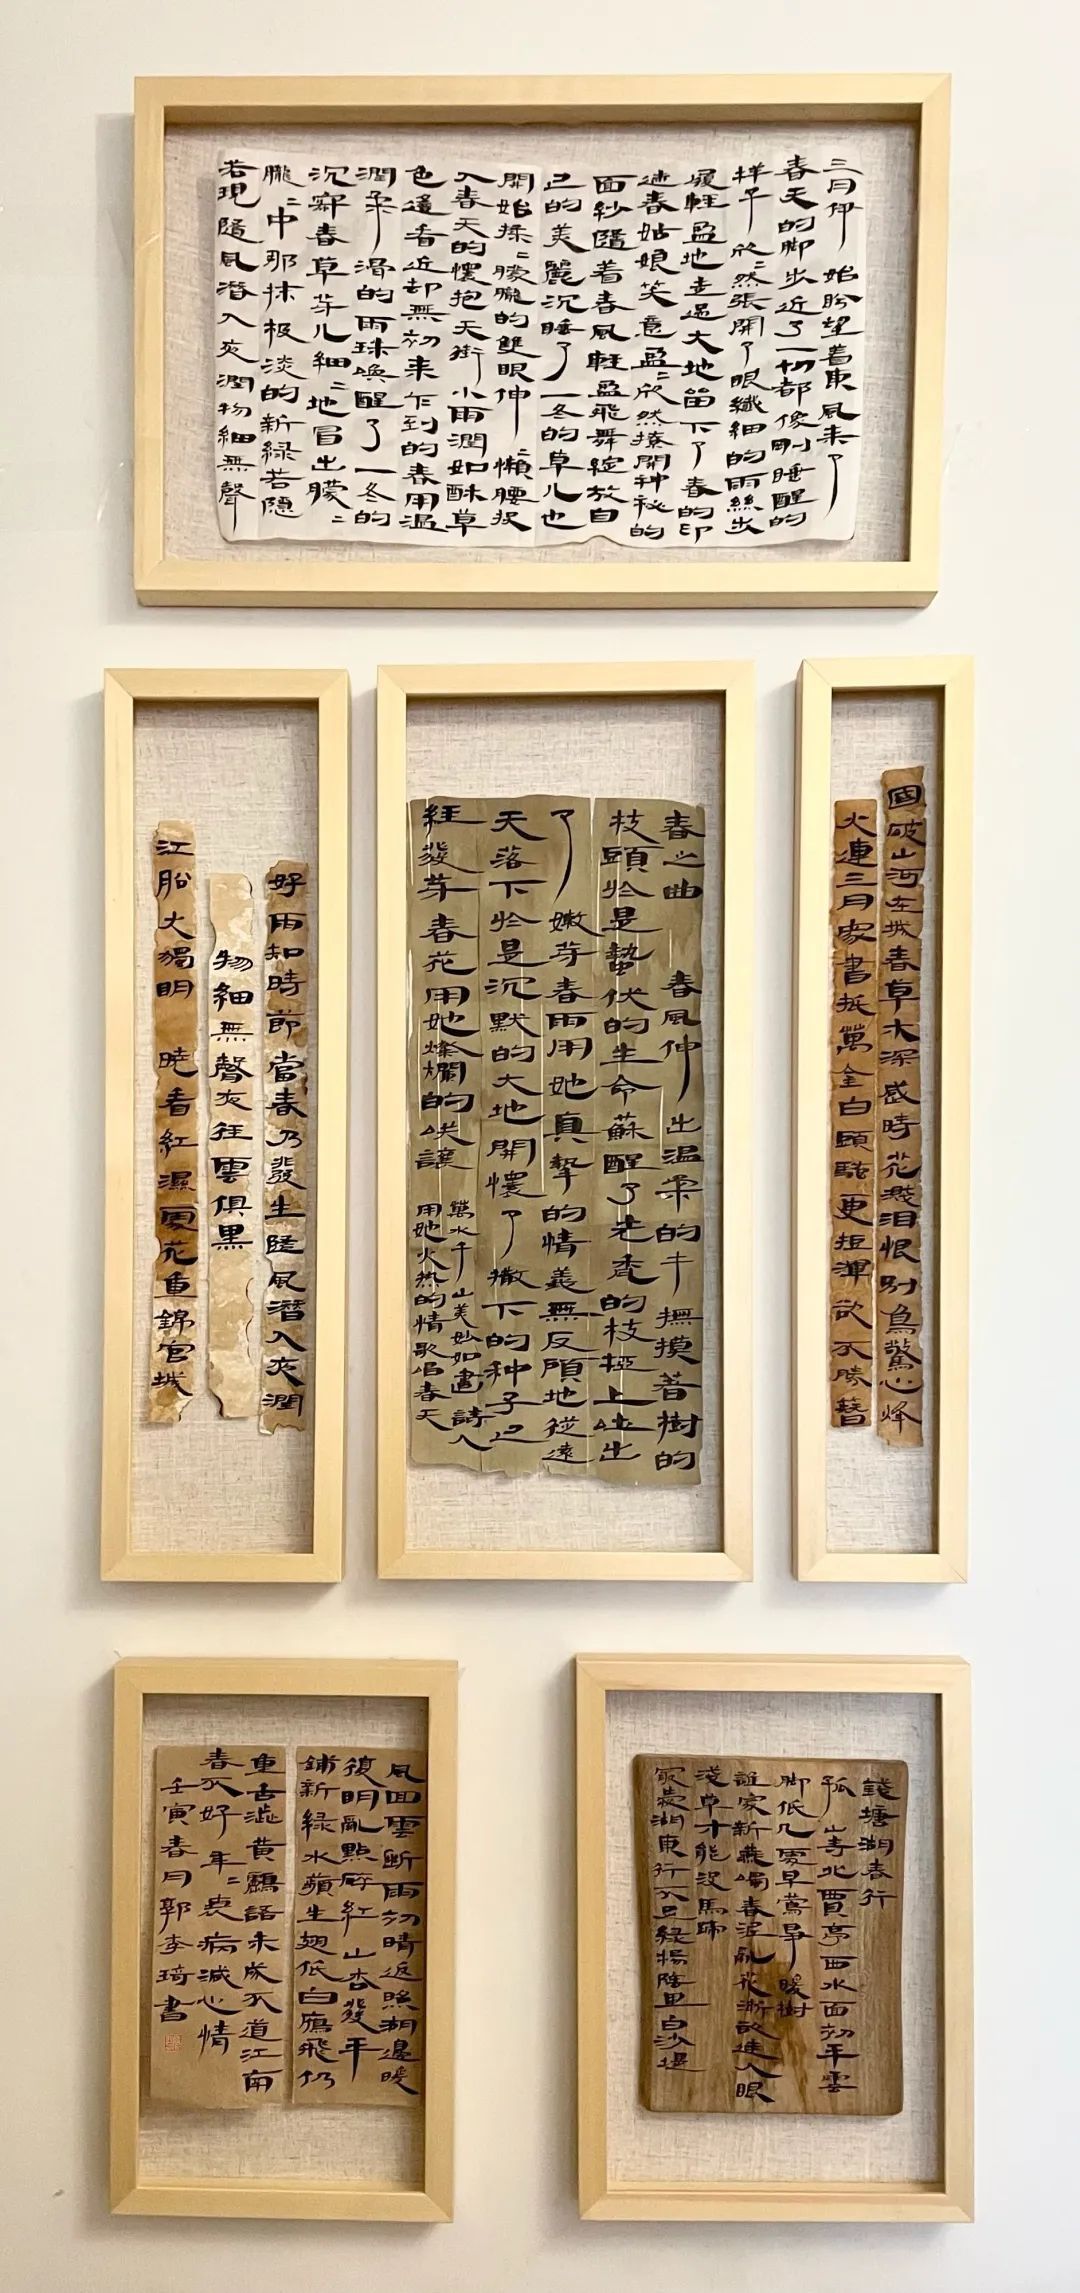 三月伊始盼望着東風来了
春天的脚步近了一切都像刚睡醒的
样子欣=然張開了眼纖細的雨絲步
履輕盈地走過大地留下了春的印
迹春姑娘笑意盈=欣然撩開神秘的
面紗隨着春風輕盈飛舞綻放自
己的美麗沉睡了一冬的草儿也
開始揉=朦朧的雙眼伸=懶腰投
入春天的懷抱天街小雨潤如酥草
色遥看近却無初来乍到的春用温
潤柔滑的雨珠喚醒了一冬的
沉寂春草芽儿細=地冒出朦=
朧=中那抹极淡的新緑若隐
若現隨風潜入夜潤物細無聲
好雨知時節當春乃發生随風潜入夜潤
物細無聲夜径雲俱黑
江船火獨明 曉看紅濕處花重錦官城
春之曲 春風伸出温柔的手撫摸着樹的
枝頭於是蟄伏的生命蘇醒了光秃的枝椏上吐出
了嫩芽春雨用她真摯的情義無反顧地從遠
天落下於是沉默的大地開懷了撒下的种子已
經發芽春花用她燦爛的笑讓
萬水千山美妙如畫詩人
用她火热的情歌唱春天
國破山河在城春草木深感時花濺泪恨别鳥驚心烽
火連三月家書抵萬金白頭騷更短渾欲不勝簪
風回雲断雨初晴返照湖邊暖
復明亂點碎紅山杏發平
鋪新緑水蘋生翅低白雁飛仍
重舌澁黄鸝語未成不道江南
春不好年=衰病減心情
壬寅春月郭李琦書
錢塘湖春行
孤山寺北賈亭西水面初平雲
脚低几處早鶯爭暖樹
誰家新燕啄春泥亂花漸欲迷人眼
淺草才能没馬蹄
最愛湖東行不足緑楊陰里白沙堤